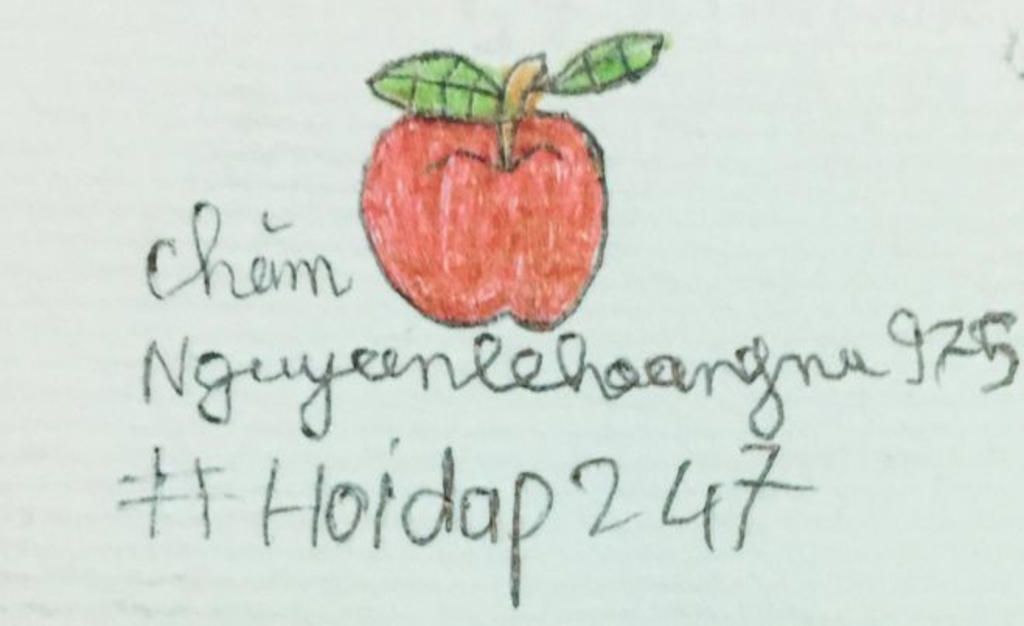 Chăm
Nguyeenlehoangnu 975
# Hoidap 247